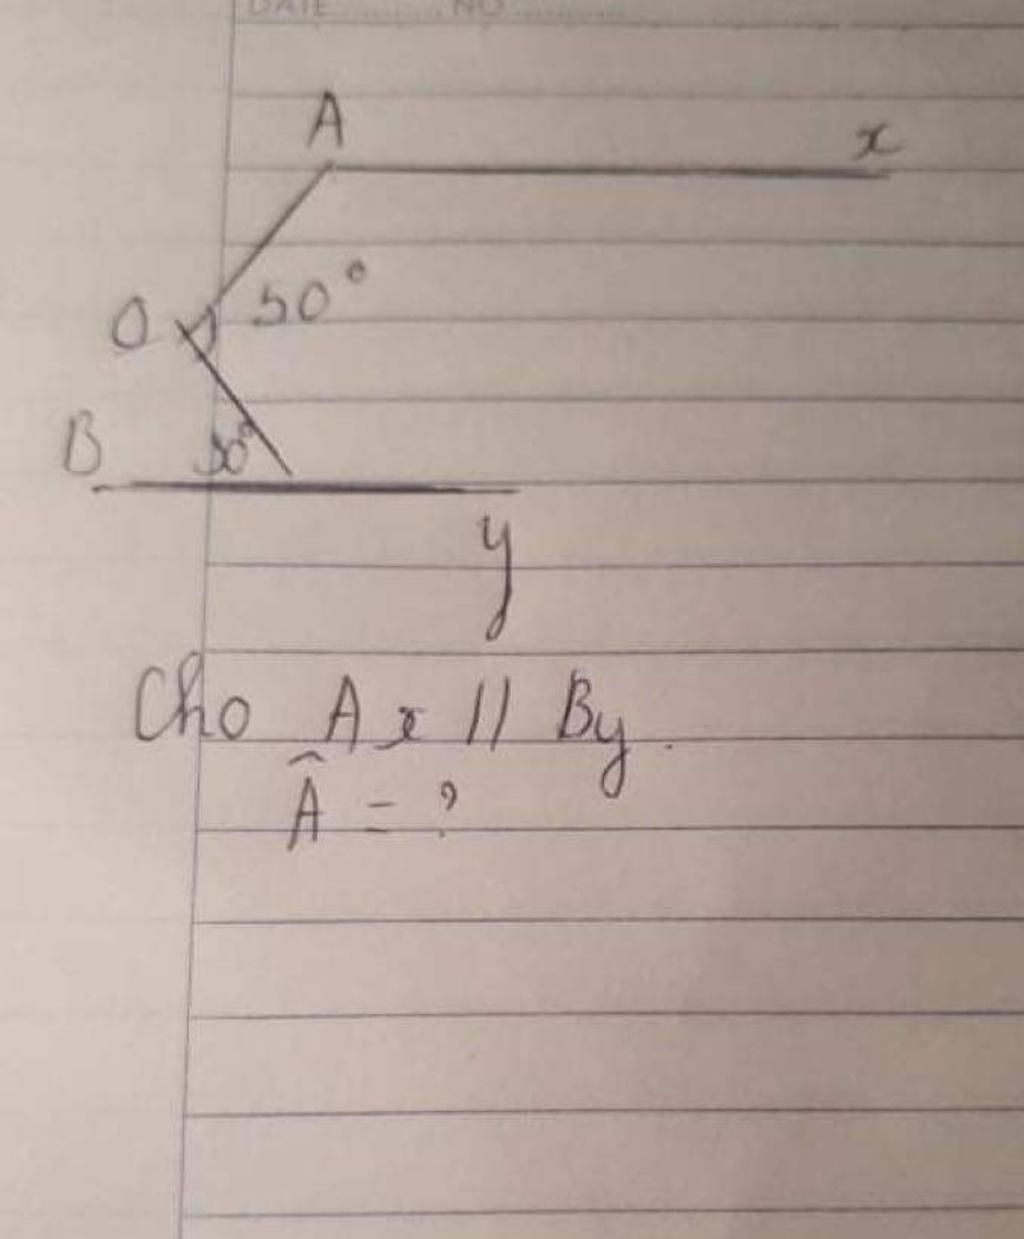 DATE ............ NO ............
A
x
50°
O
B
30°
y
Cho Ax // By.
Â = ?